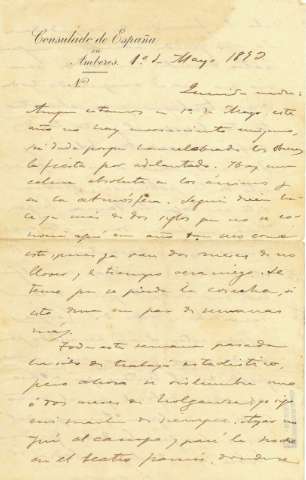 Consulado de España
en
Amberes. 1º de Mayo 1893
Nº
Querida madre:
Aunque estamos en 1º de Mayo, este
año no hay movimiento ninguno,
sin duda porque han celebrado los obreros
la fiesta por adelantado. Hay una
calma absoluta en los ánimos y
en la atmósfera. Según dicen ha-
ce ya más de dos siglos que no se co-
nocía aquí un año tan seco como
este, pues ya van dos meses de no
llover, y el tiempo veraniego. Se
teme que se pierda la cosecha, si
esto dura un par de semanas
más.
Toda esta semana pasada
ha sido de trabajo estadístico,
pero ahora se vislumbra uno
ó dos meses de holganza; yo sigo
mi martin de siempre. Ayer
fui al campo, y pasé la noche
en el teatro donde se